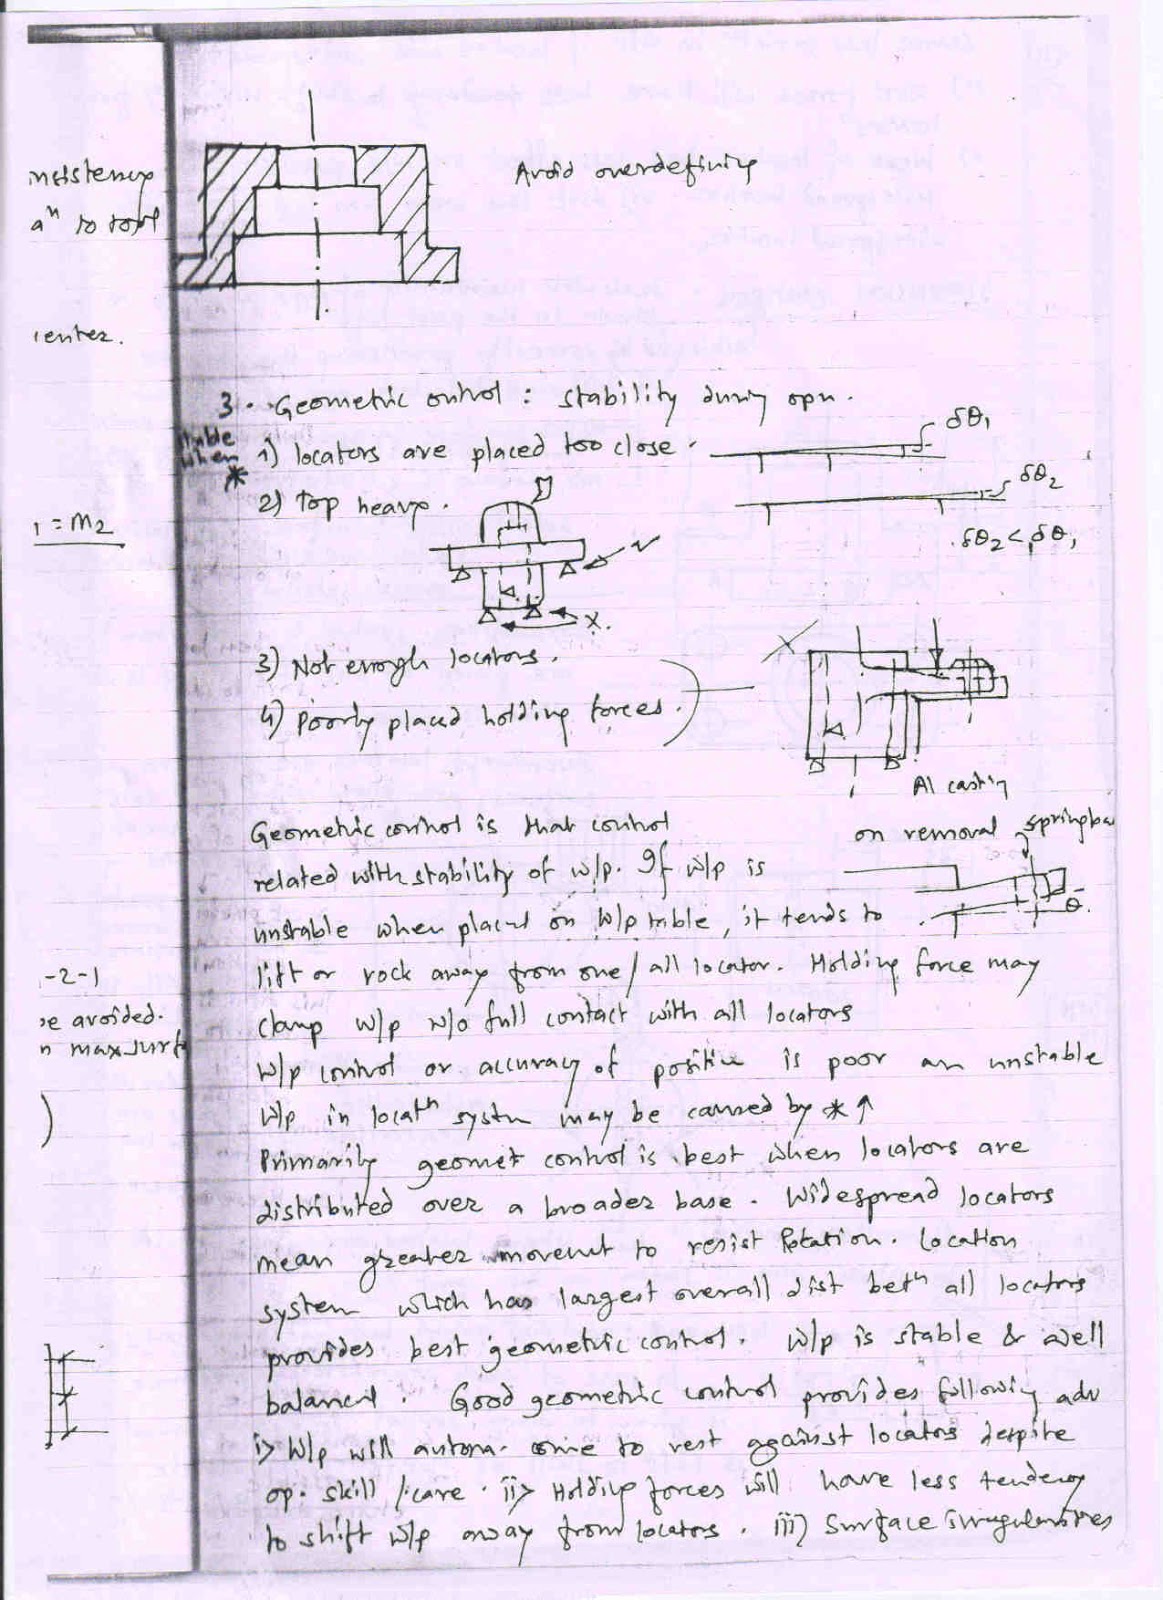 nsistency
aⁿ to tool
center.
1 = m2
-2-1
be avoided.
n max surf
)
Avoid overdefining
3. Geometric ontrol : stability during opn.
when
* 1) locators are placed too close.
δθ1
2) Top heavy.
δθ2
δθ2 < δθ1
x.
3) Not enough locators.
4) Poorly placed holding forces.
Al casting
Geometric control is that control
on removal springba
related with stability of w/p. If w/p is
unstable when placed on w/p table, it tends to
θ.
lift or rock away from one/all locator. Holding force may
clamp w/p w/o full contact with all locators
w/p control or accuracy of positie is poor an unstable
w/p in locatⁿ systm may be caused by * ↑
Primarily geomet control is best when locators are
distributed over a broader base. Widespread locators
mean greater movemt to resist Rotation. Location
system which has largest overall dist betⁿ all locators
provides best geometric control. w/p is stable & well
balanced. Good geometric control provides following adv
i> w/p will automa. come to rest against locators despite
op. skill /care. ii> Holding forces will have less tendency
to shift w/p away from locators. iii) Surface irregularities